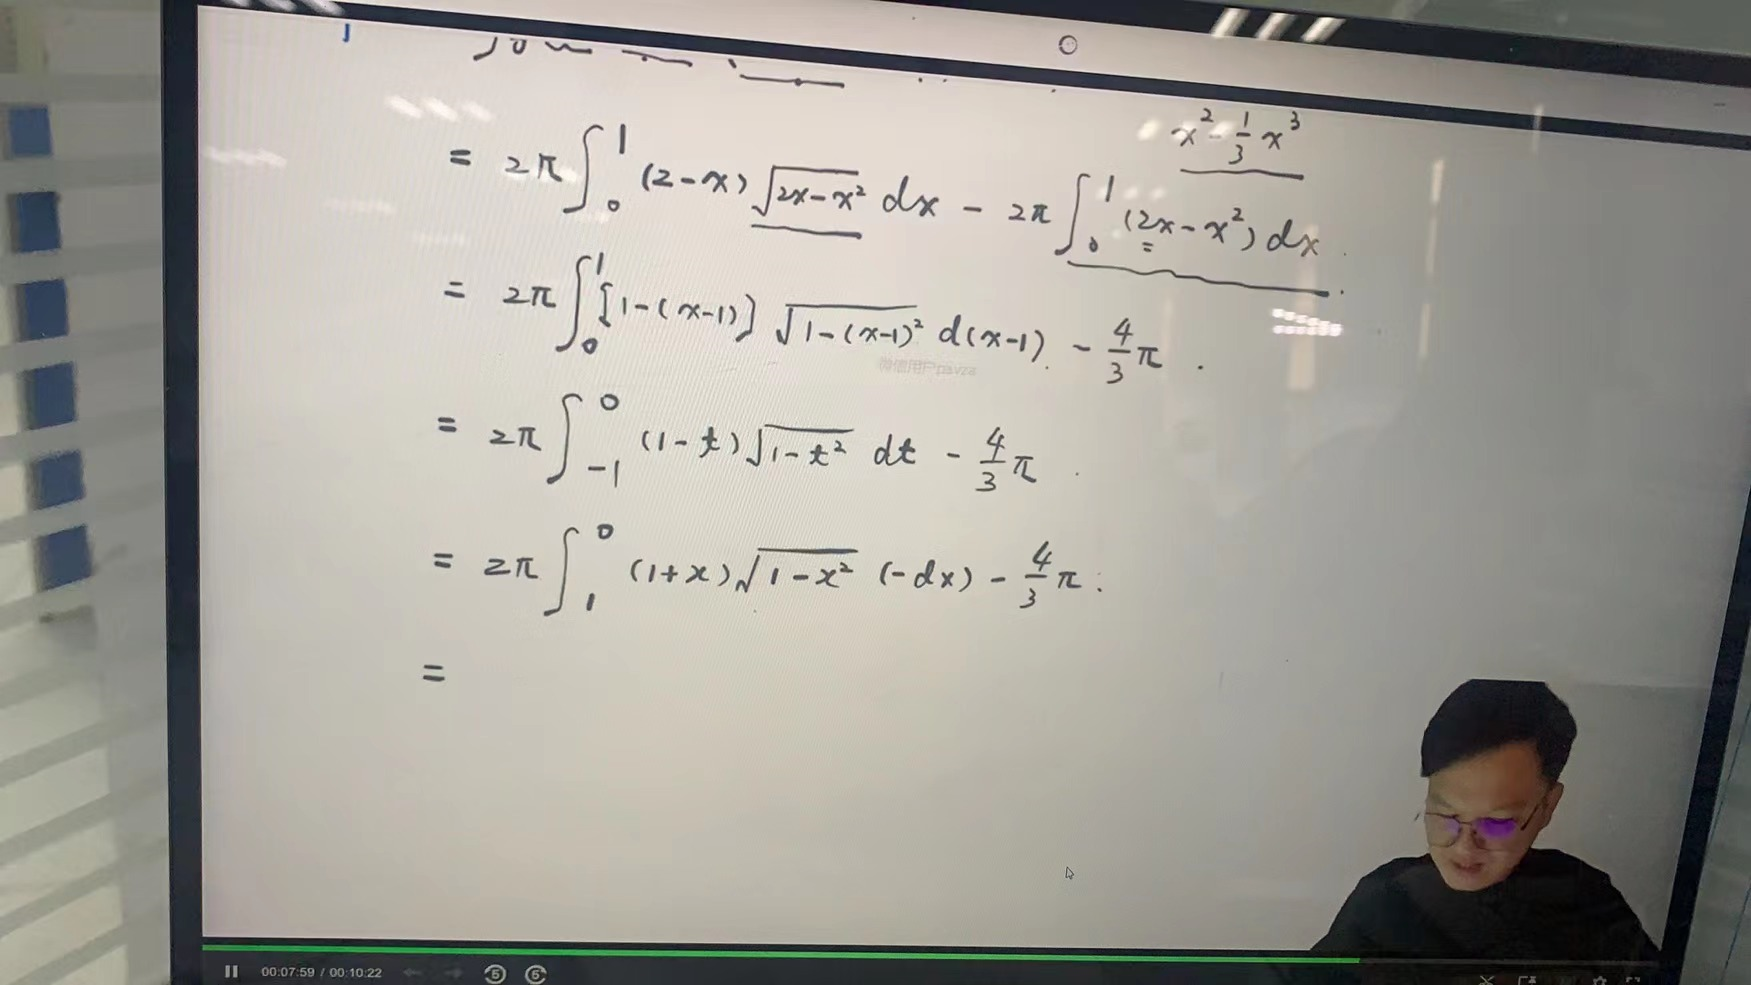 x² - 1/3 x³
= 2π ∫₀¹ (2-x) √(2x-x²) dx - 2π ∫₀¹ (2x-x²) dx.
= 2π ∫₀¹ [1-(x-1)] √(1-(x-1)²) d(x-1) - 4/3 π.
= 2π ∫₋₁⁰ (1-t) √(1-t²) dt - 4/3 π.
= 2π ∫₁⁰ (1+x) √(1-x²) (-dx) - 4/3 π.
=
00:07:59 / 00:10:22
5 5